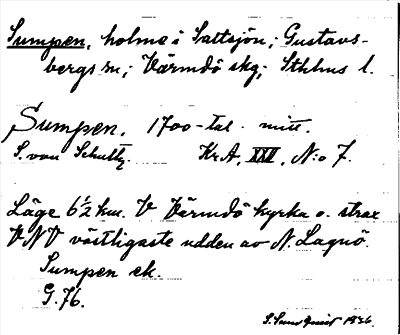 Sumpen, holme i Saltsjön; Gustavs-
bergs sn; Värmdö skg; Sthlms l.
Sumpen. 1700-tal. mitt.
S. von Schultz. Kr.A. XXI, N:o 7.
Läge 6½ km. V Värmdö kyrka o. strax
VNV västligaste udden av N. Lagnö.
Sumpen ek.
G.76.
S. Sundquist 1936.